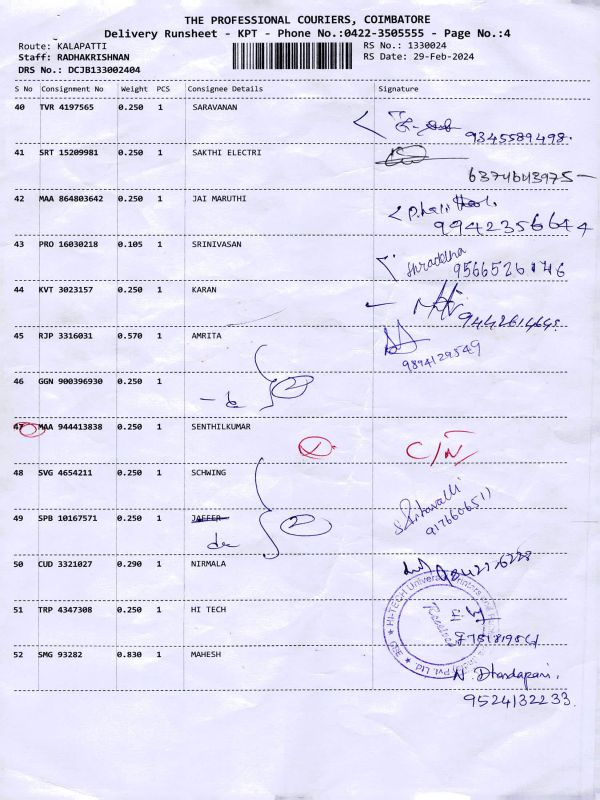 THE PROFESSIONAL COURIERS, COIMBATORE
Delivery Runsheet - KPT - Phone No.:0422-3505555 - Page No.:4
Route: KALAPATTI RS No.: 1330024
Staff: RADHAKRISHNAN RS Date: 29-Feb-2024
DRS No.: DCJB133002404
S No Consignment No Weight PCS Consignee Details Signature
40 TVR 4197565 0.250 1 SARAVANAN
9345589498.
41 SRT 15209981 0.250 1 SAKTHI ELECTRI
6374643975
42 MAA 864803642 0.250 1 JAI MARUTHI
9942356644
43 PRO 16030218 0.105 1 SRINIVASAN
Shraddha
9566526146
44 KVT 3023157 0.250 1 KARAN
45 RJP 3316031 0.570 1 AMRITA
9894129549
46 GGN 900396930 0.250 1
2
47 MAA 944413838 0.250 1 SENTHILKUMAR C/N
48 SVG 4654211 0.250 1 SCHWING
49 SPB 10167571 0.250 1 JAFFER
2
917660651
50 CUD 3321027 0.290 1 NIRMALA
51 TRP 4347308 0.250 1 HI TECH
52 SMG 93282 0.830 1 MAHESH
N. Dhandapani.
9524132233